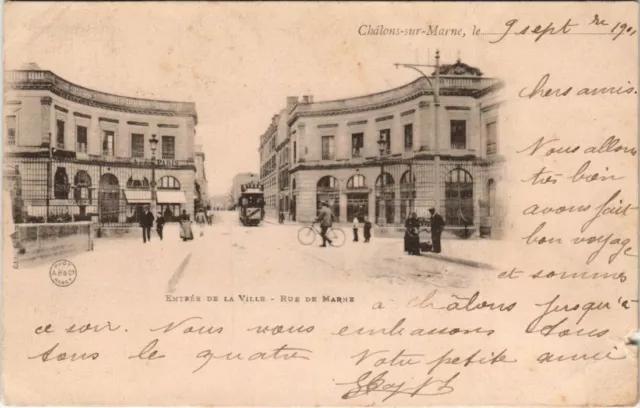 Châlons-sur-Marne, le 9 sept bre 1901
Chers amis.
Nous allons
très bien
avons fait
bon voyage
et sommes
à Châlons jusqu'à
ce soir. Nous vous embrassons tous
tous le quatre Votre petite amie
PARIS
ENTRÉE DE LA VILLE - RUE DE MARNE